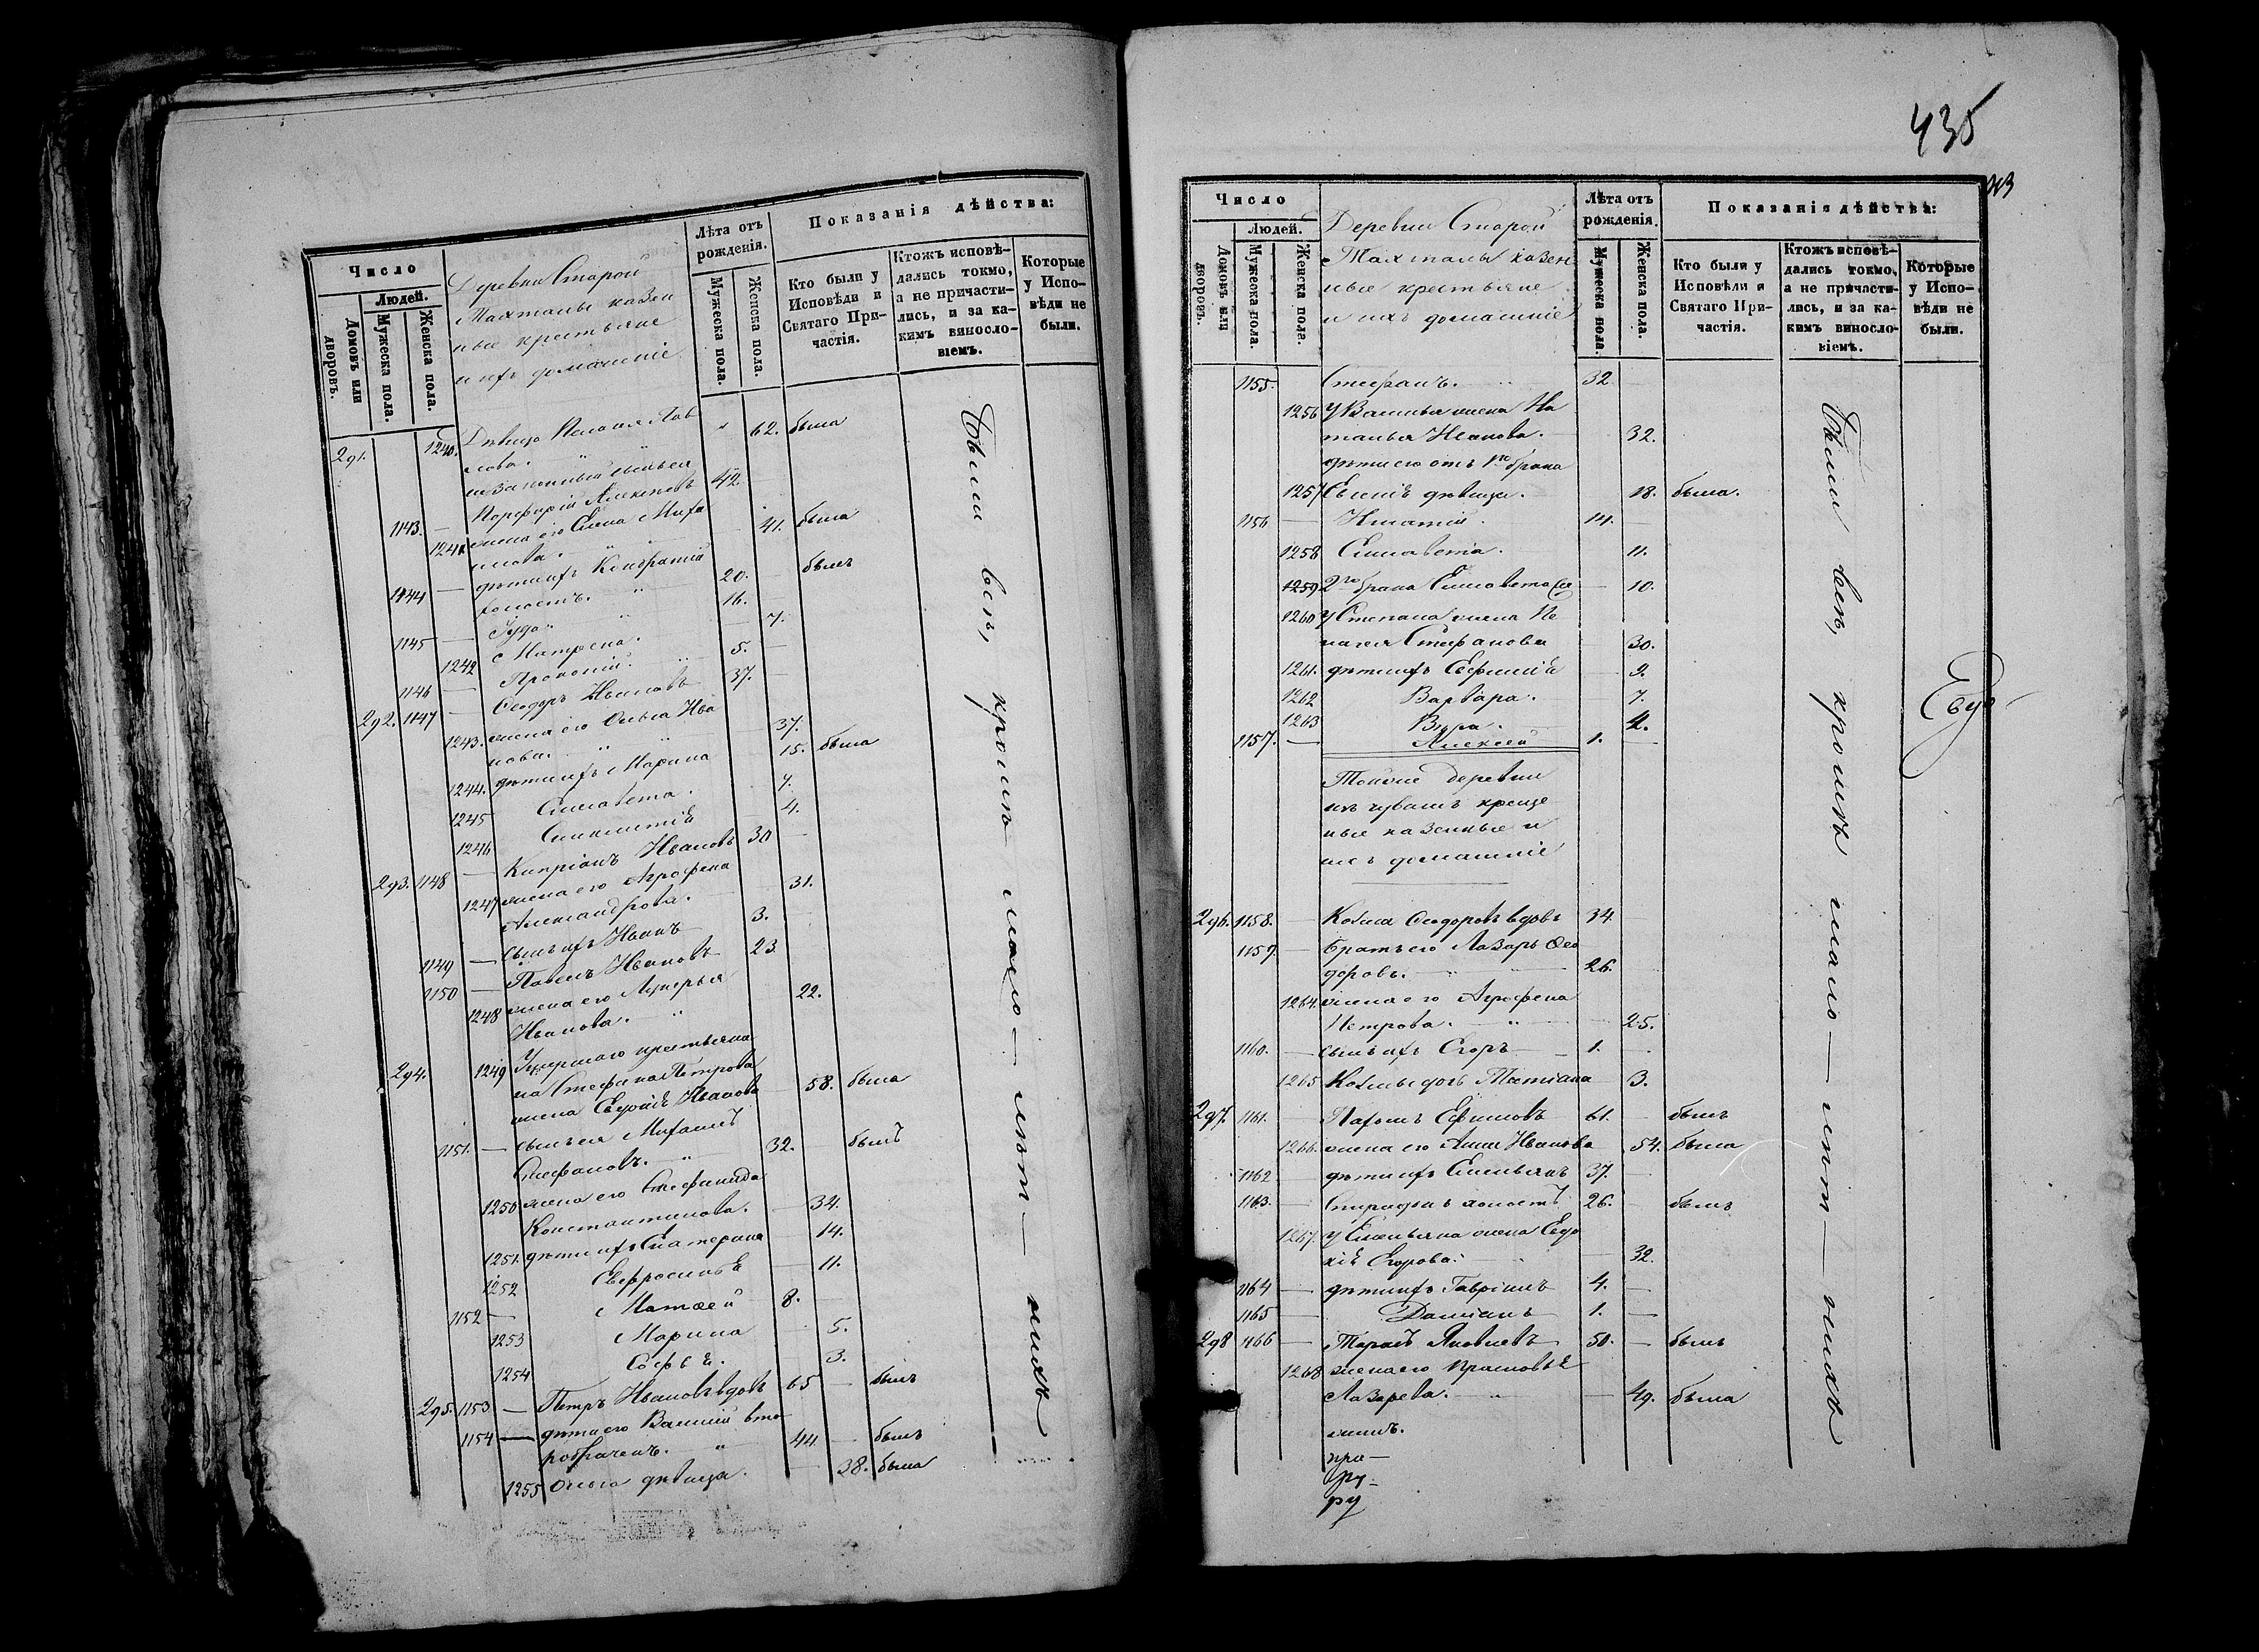 Число
Людей.
Домовъ или дворовъ.
Мужеска пола.
Женска пола.
Деревни Старой
Тахталы казен
ные крестьяне
и ихъ домашніе
Лѣта отъ рожденія.
Мужеска пола.
Женска пола.
Показанія дѣйства:
Кто были у Исповѣди и Святаго Причастія.
Ктожъ исповѣдались токмо, а не причастились, и за какимъ винословіемъ.
Которые у Исповѣди не были.
291. 1240. Дѣвица Пелагея 62. была
незаконный сынъ ея
1143. — Порфирій Алексѣевъ 42.
1241 жена его Елена Миха
йлова. 41. была
1144 — дѣти ихъ Кондратій
холостъ. 20. — былъ
1145 — Іуда. 16.
1242 Матрена. — 7.
1146 — Прокопій. 5. —
292. 1147 — Ѳеодоръ Ивановъ 37. —
1243. жена его Ольга Ива
нова. 37.
1244. дѣти ихъ Марина 15. была
1245 Елисавета. 7.
1246 Синклитикія 4.
293. 1148 — Кипріанъ Ивановъ 30 —
1247 жена его Агрофена
Александрова. 31.
1149 — сынъ ихъ Иванъ 3.
1150 — Павелъ Ивановъ 23
1248 жена его Лукерья
Иванова. 22.
294. 1249 Умершаго крестьяни
на Стефана Петрова
жена Евдокія Иванова — 58. была
1151. — сынъ ея Михаилъ
Стефановъ. 32. былъ
1250 жена его Стефанида
Константинова. — 34.
1251. дѣти ихъ Екатерина — 14.
1252 Евфросинья — 11.
1152 — Матѳей 8. —
1253 Марина 5.
1254 Софья. 3.
295. 1153 — Петръ Ивановъ вдовъ 65 — былъ
1154 — дѣти его Василій вто
робраченъ. 44. — былъ
1255 Ольга дѣвица. — 38. была
Были всѣ, кромѣ мало — лѣт — нихъ
435
Число
Людей.
Домовъ или дворовъ.
Мужеска пола.
Женска пола.
Деревни Старой
Тахталы казен
ные крестьяне
и ихъ домашніе
Лѣта отъ рожденія.
Мужеска пола.
Женска пола.
Показанія дѣйства:
Кто были у Исповѣди и Святаго Причастія.
Ктожъ исповѣдались токмо, а не причастились, и за какимъ винословіемъ.
Которые у Исповѣди не были.
1155. Стефанъ. 32
1256 У Василья жена На
талья Иванова. 32.
дѣти его отъ 1го брака
1257 Евгенія дѣвица. 18. была.
1156 — Игнатій. 14. —
1258 Елисавета. 11.
1259 2го брака Елисавета же — 10.
1260 У Степана жена Пе
лагея Стефанова 30.
1261. дѣти ихъ Евфимія — 9.
1262 Варвара. — 7.
1263 Вѣра. — 4.
1157. — Алексѣй 1. —
Тойже деревни
изъ чувашъ креще
ные казенные и
ихъ домашніе
296. 1158. — Козма Ѳеодоровъ вдовъ 34.
1159. — Братъ его Лазарь Ѳео
доровъ. 26.
1264. жена его Агрофена
Петрова. — 25.
1160. — сынъ ихъ Егоръ 1. —
1265 Козмы дочь Татіана 3.
297. 1161. — Ефимовъ 61. — былъ
1266. жена его Анна Иванова 54. была
1162 — дѣти ихъ Емельянъ 37. —
1163. — Спиридонъ холостъ 26. — былъ
1267. У Емельяна жена Евдо
кія Егорова. — 32.
1164 — дѣти ихъ Гавріилъ 4. —
1165 — Даміанъ 1. —
298 1166 — Тарасъ Яковлевъ 50. — былъ
1268 жена его Прасковья
Лазарева. — 49. была
Были всѣ, кромѣ мало — лѣт — нихъ
Евд